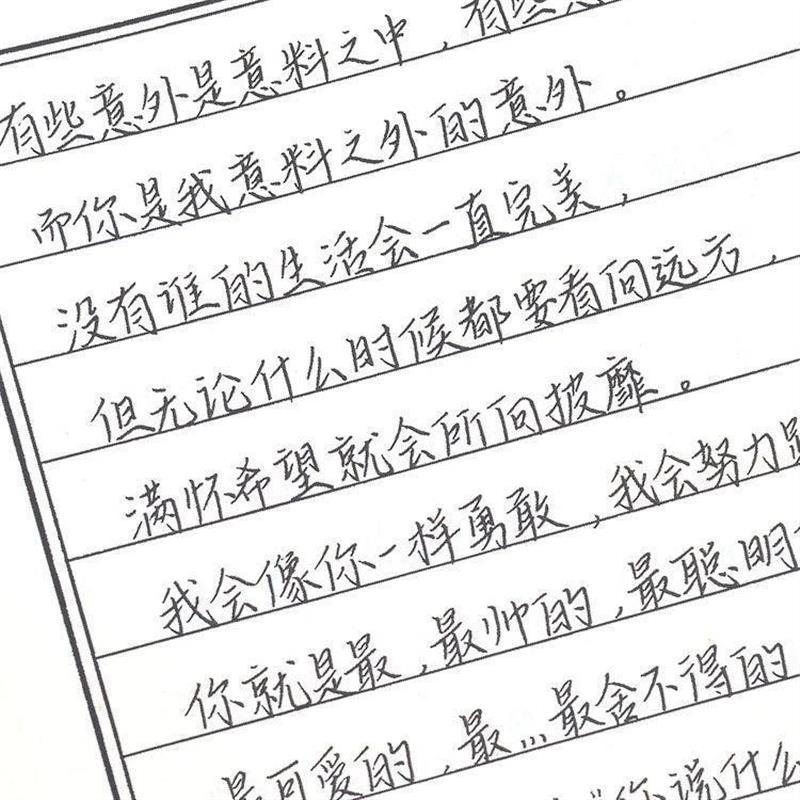 有些意外是意料之中，有些
而你是我意料之外的意外。
没有谁的生活会一直完美，
但无论什么时候都要看向远方，
满怀希望就会所向披靡。
我会像你一样勇敢，我会努力
你就是最，最帅的，最聪明
最可爱的，最...最舍不得的
你说什么